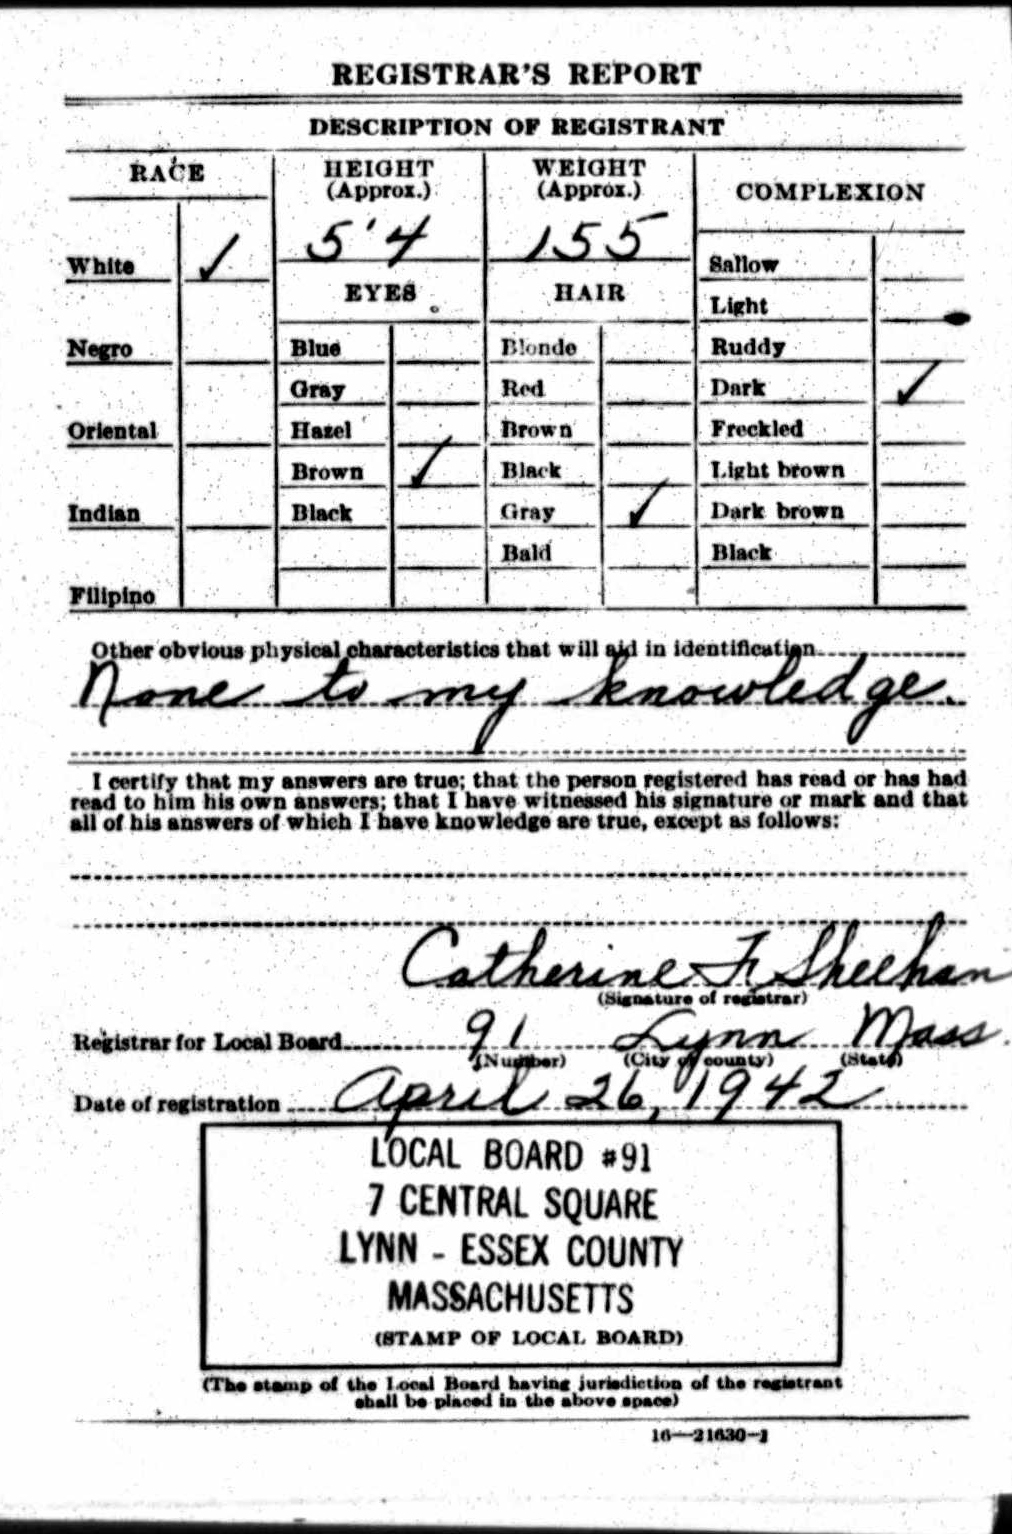 REGISTRAR'S REPORT
DESCRIPTION OF REGISTRANT
RACE
HEIGHT
(Approx.)
WEIGHT
(Approx.)
COMPLEXION
White ✓
5'4
155
Sallow
EYES
HAIR
Light
Negro
Blue
Blonde
Ruddy
Gray
Red
Dark ✓
Oriental
Hazel
Brown
Freckled
Brown ✓
Black
Light brown
Indian
Black
Gray ✓
Dark brown
Bald
Black
Filipino
Other obvious physical characteristics that will aid in identification
None to my knowledge.
I certify that my answers are true; that the person registered has read or has had
read to him his own answers; that I have witnessed his signature or mark and that
all of his answers of which I have knowledge are true, except as follows:
Catherine F. Sheehan
(Signature of registrar)
Registrar for Local Board 91 Lynn Mass.
(Number) (City or county) (State)
Date of registration April 26, 1942
LOCAL BOARD #91
7 CENTRAL SQUARE
LYNN - ESSEX COUNTY
MASSACHUSETTS
(STAMP OF LOCAL BOARD)
(The stamp of the Local Board having jurisdiction of the registrant
shall be placed in the above space)
16—21630-1